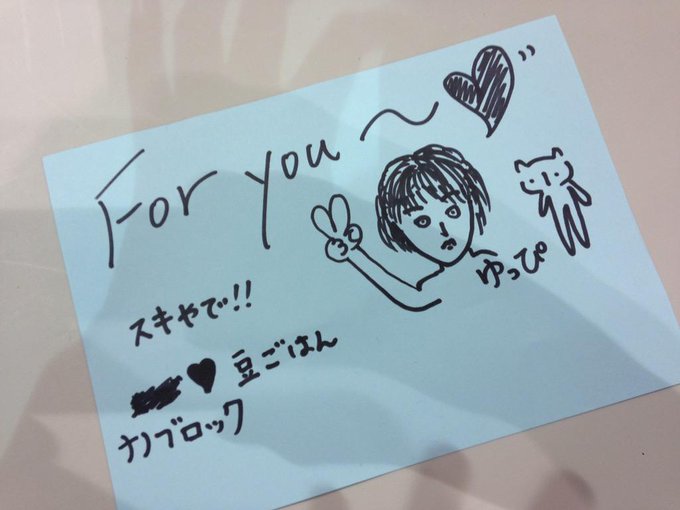 For you〜♥
ゆっぴ
スキやで!!
♥豆ごはん
ナノブロック